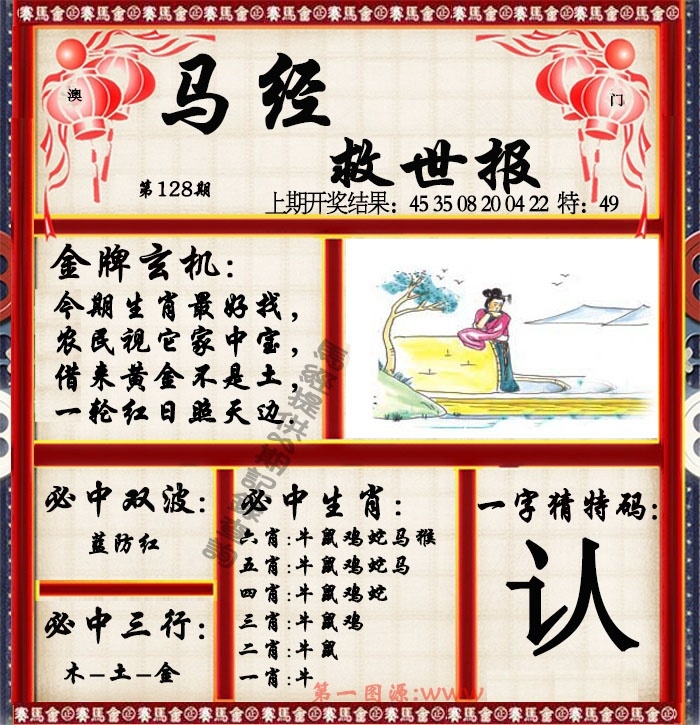 賽馬會金正賽馬會金正賽馬會金正賽馬會金正賽馬會金正賽馬會金
澳
门
马经
救世报
第128期
上期开奖结果：45 35 08 20 04 22 特：49
金牌玄机：
今期生肖最好找，
农民视它家中宝，
借来黄金不是土，
一轮红日照天边.
必中双波：
蓝防红
必中三行：
木－土－金
必中生肖：
六肖:牛鼠鸡蛇马猴
五肖:牛鼠鸡蛇马
四肖:牛鼠鸡蛇
三肖:牛鼠鸡
二肖:牛鼠
一肖:牛
一字猜特码:
认
第一图源:www